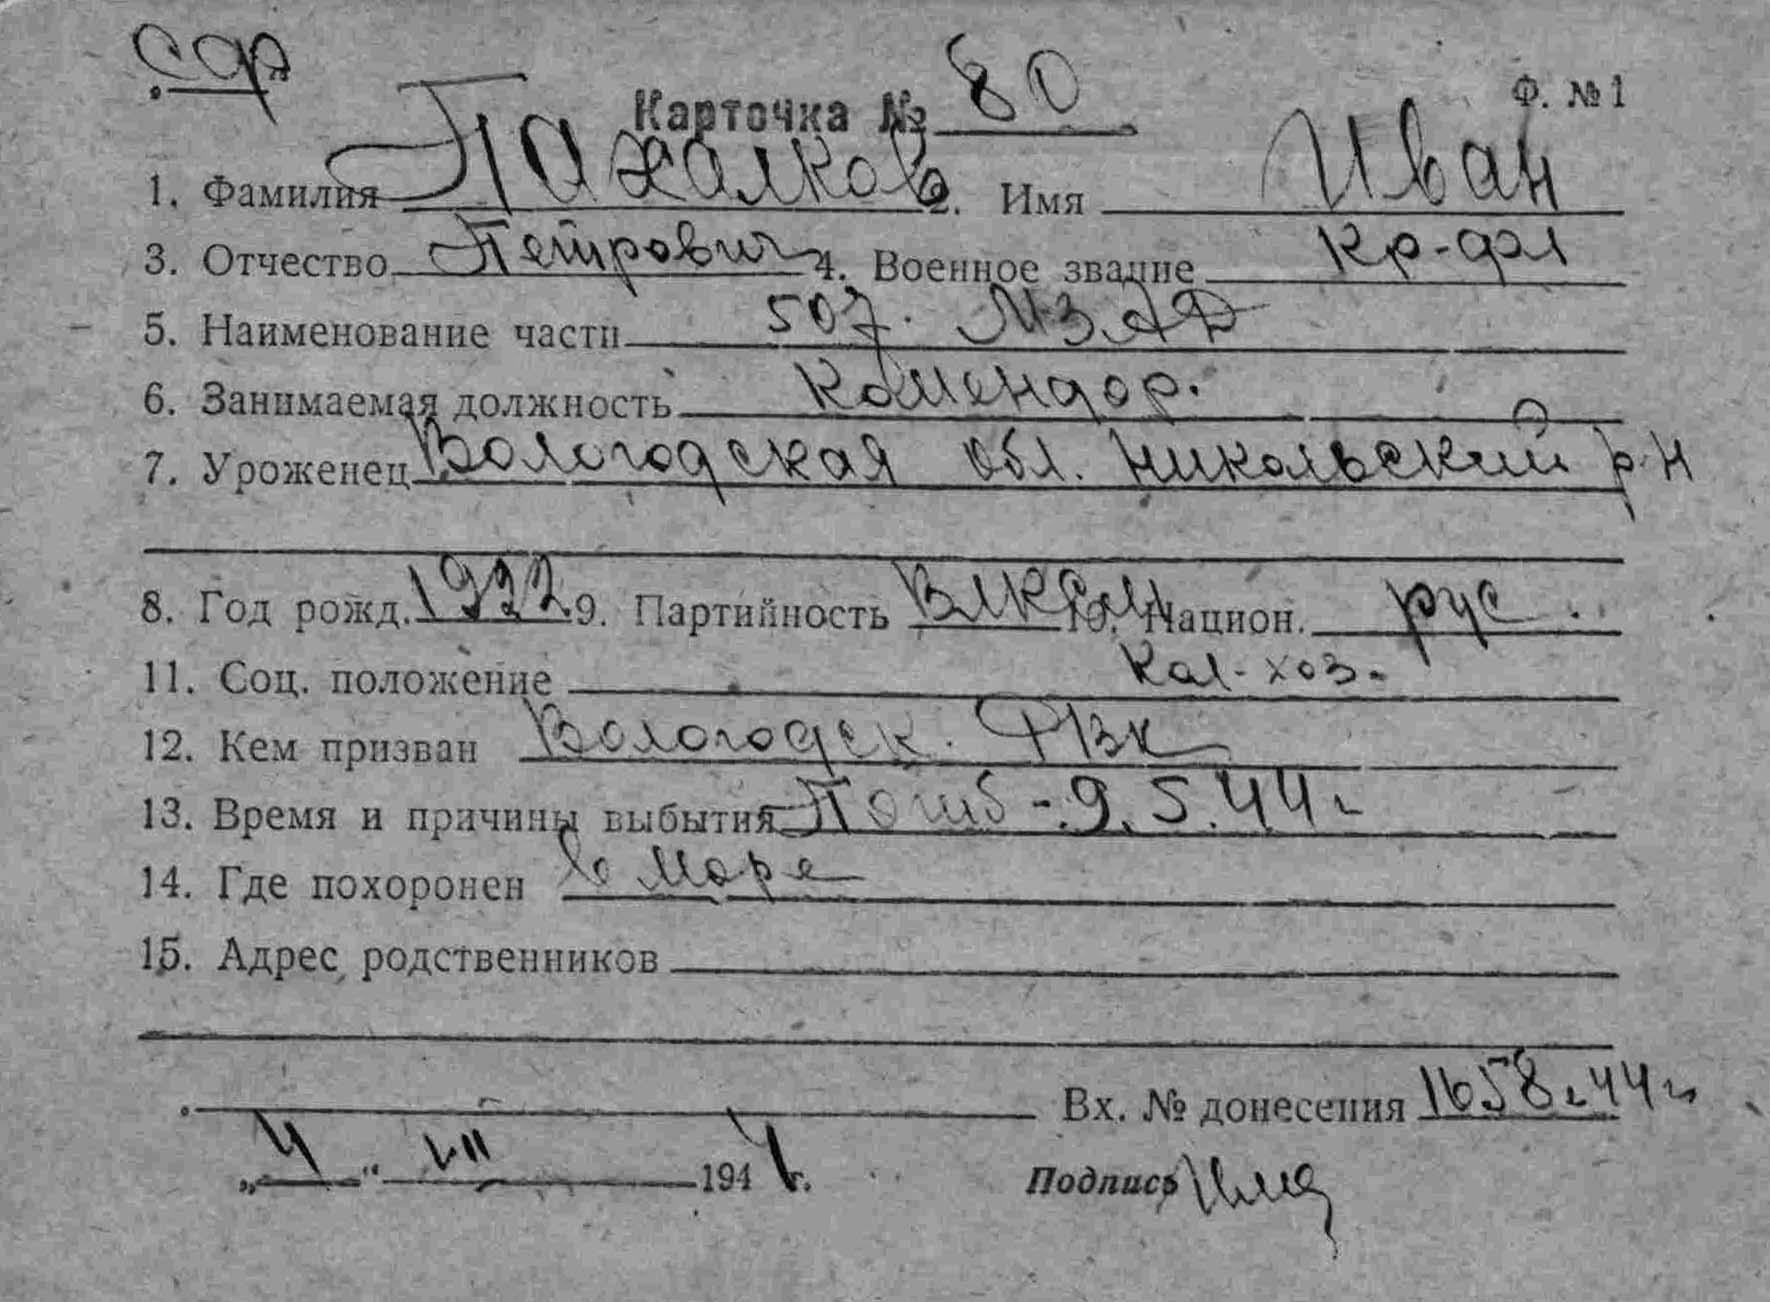 Ф. № 1
Карточка № 80
1. Фамилия Пахалков 2. Имя Иван
3. Отчество Петрович 4. Военное звание Кр-фл
5. Наименование части 507. МЗАД
6. Занимаемая должность Комендор.
7. Уроженец Вологодская обл. Никольский р-н
8. Год рожд. 1922 9. Партийность ВЛКСМ 10. Национ. рус.
11. Соц. положение Кол-хоз.
12. Кем призван Вологодск. РВК
13. Время и причины выбытия Погиб - 9.5.44 г
14. Где похоронен в море
15. Адрес родственников
Вх. № донесения 1658с 44 г
„4“ VII 1944 г. Подпись